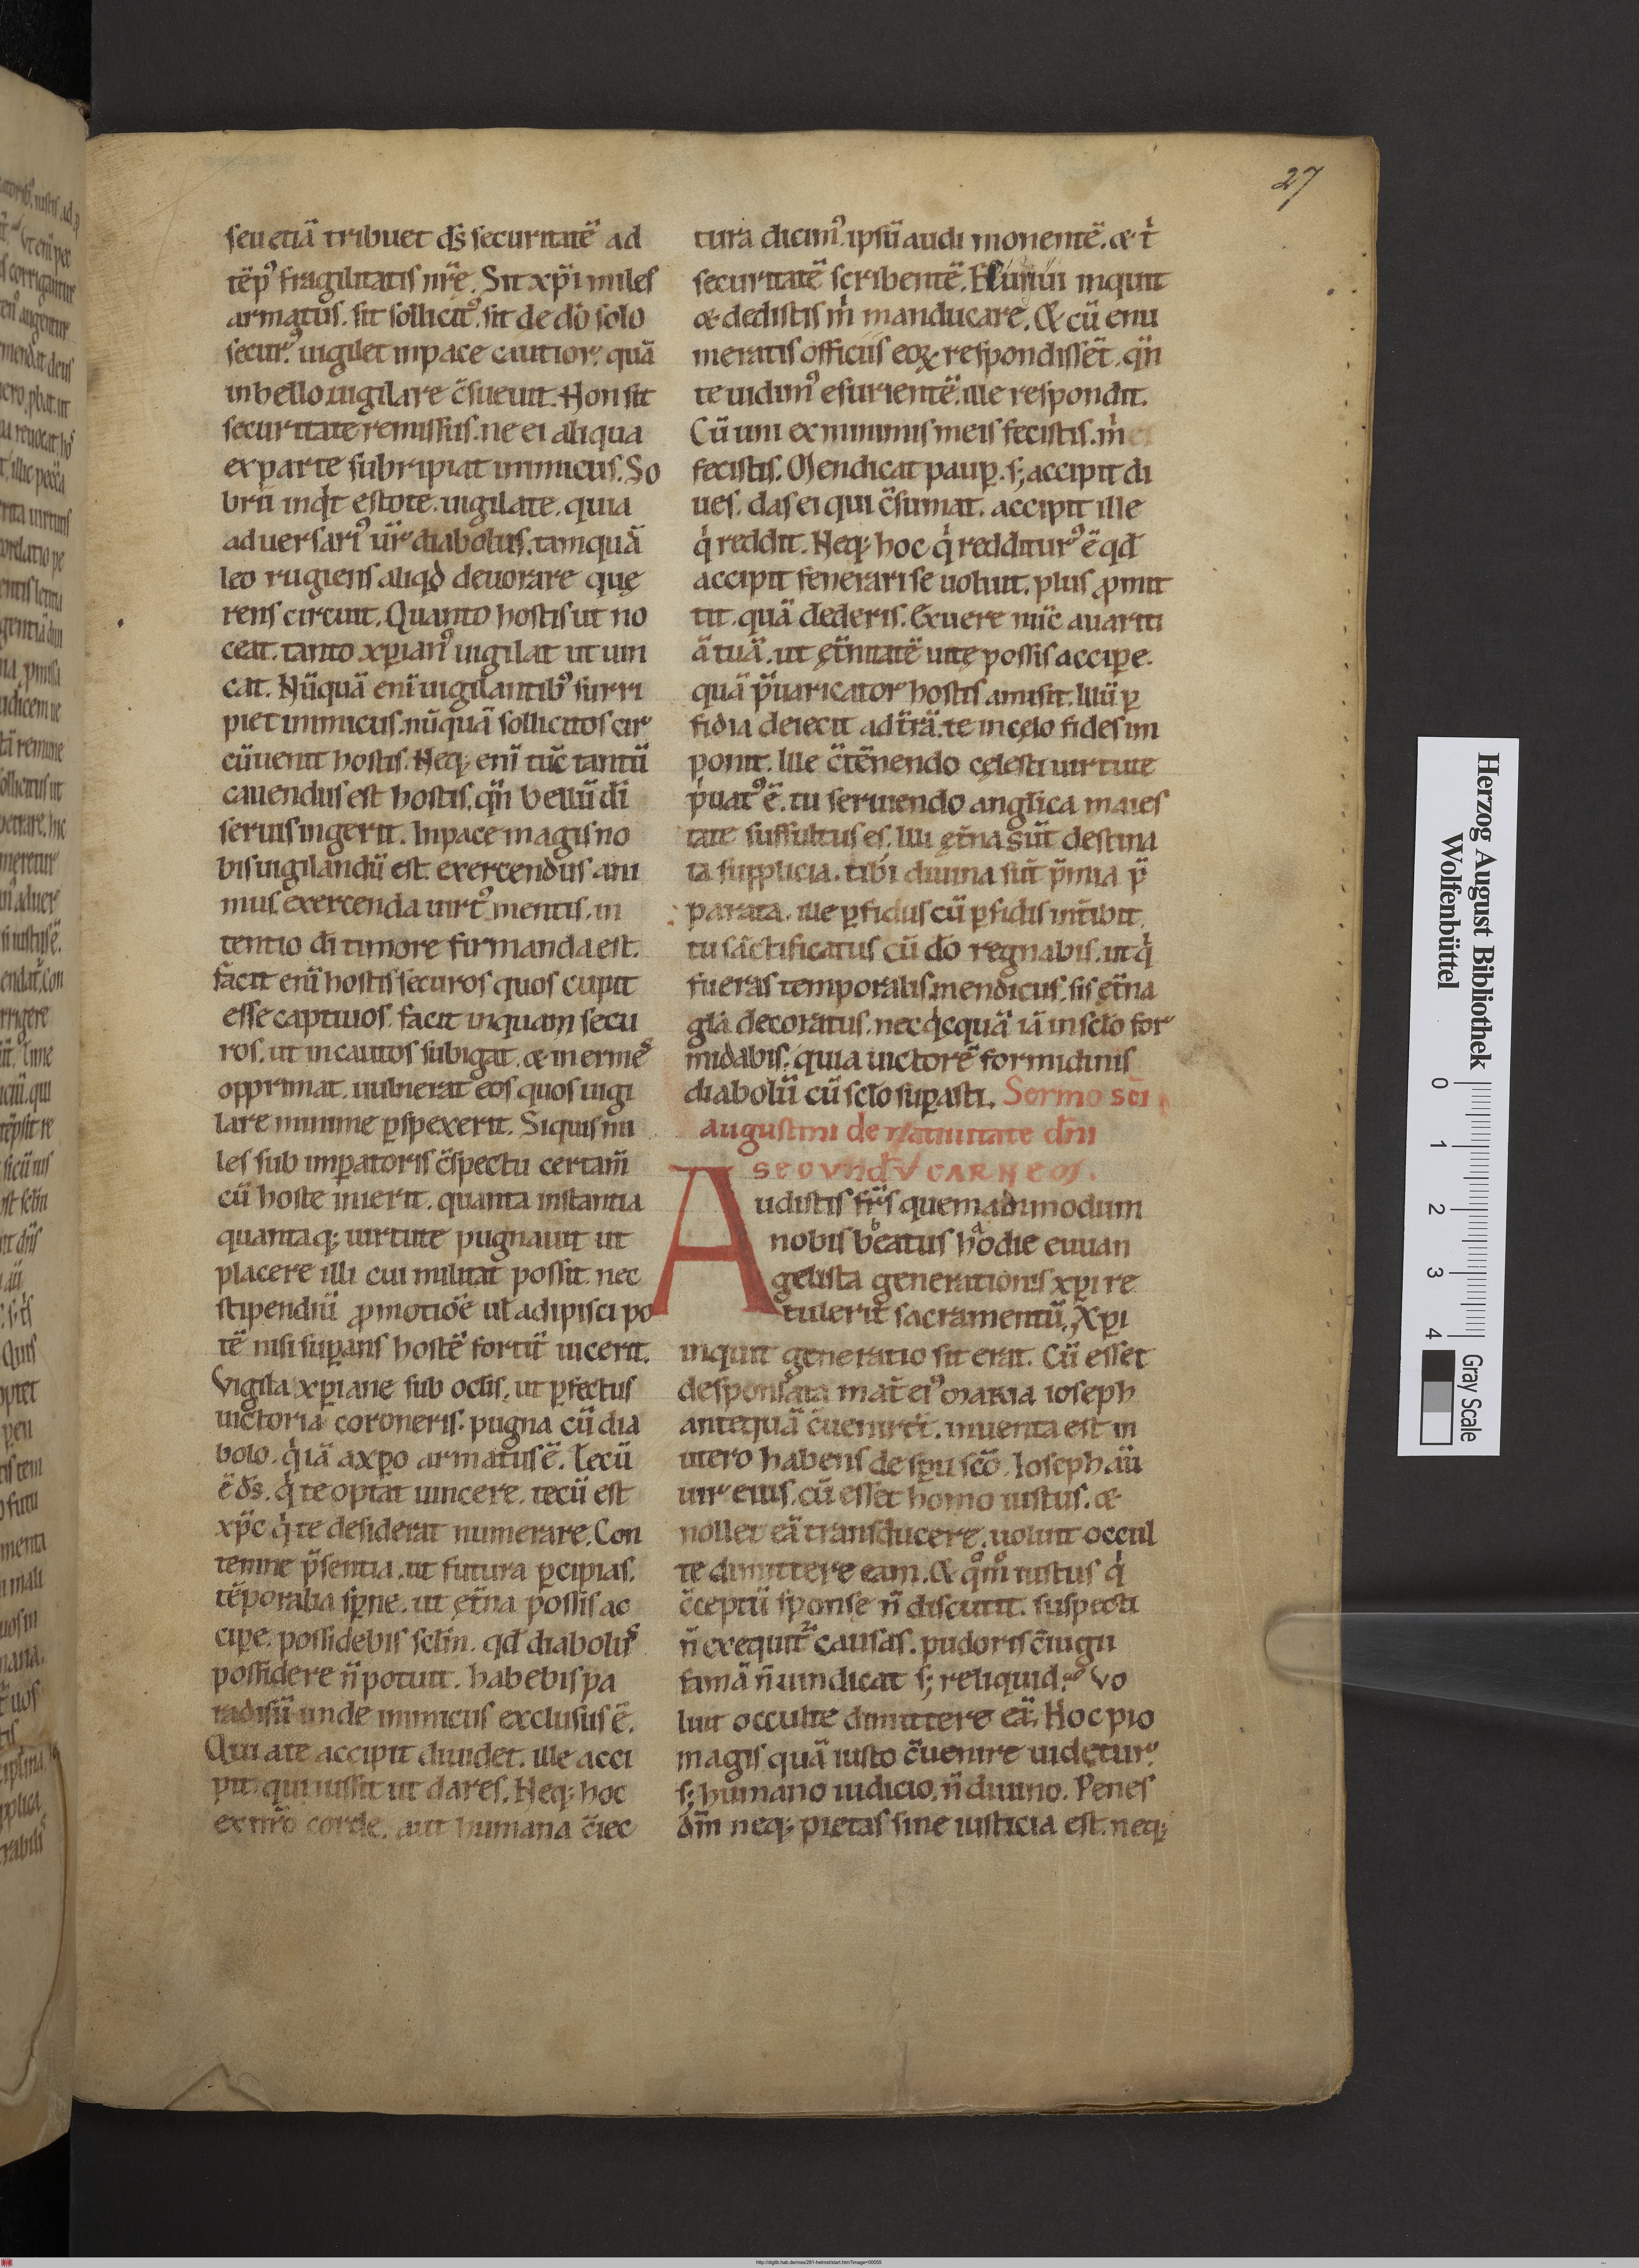 27
seu etiā tribuet ds̄ securitatē ad
tēp⁹ fragilitatis nr̄ę. Sit xp̄i miles
armatus. sit sollicit⁹. sit de dō solo
secur⁹. uigilet inpace cautior. quā
inbello uigilare c̄sueuit. Non sit
securitate remissus. ne ei aliqua
ex parte subripiat inimicus. So
brii inq̇t estote. uigilate. quia
aduersari⁹ ur̄ diabolus. tamquā
leo rugiens aliqd̄ deuorare quę
rens circuit. Quanto hostis ut no
ceat. tanto xp̄ian⁹ uigilat ut uin
cat. Nūquā enī uigilantib⁹ surri
piet inimicus. nūquā sollicitos cir
cūuenit hostis. Neq; enī tūc tantū
cauendus est hostis. qn̄ bellū dī
seruis ingerit. Inpace magis no
bis uigilandū est. exercendus ani
mus. exercenda uirt⁹ mentis. in
tentio dī timore firmanda est.
facit enī hostis securos quos cupit
esse captiuos. facit inquam secu
ros. ut incautos subigat. & inermes
opprimat. uulnerat eos quos uigi
lare minime ꝑspexerit. Siquis mi
les sub imꝑatoris c̄spectu certam̄
cū hoste inierit. quanta instantia
quantaq; uirtute pugnauit ut
placere illi cui militat possit. nec
stipendiū ꝓmotiōē ul adipisci po
tē nisi suꝑans hostē fortit̄ uicerit.
Vigila xp̄iane sub oclis. ut ꝑfectus
uictoria coroneris. pugna cū dia
bolo. q̇ iā axp̄o armatus ē. Tecū
ē ds̄. q̇ te optat uincere. tecū est
xp̄c q̇ te desiderat numerare. Con
temne p̄sentia. ut futura ꝑcipias.
tēporalia sꝑne. ut ęt̄na possis ac
ciꝑe. possidebis sclm̄. qd̄ diabolus
possidere n̄ potuit. habebis pa
radisū unde inimicus exclusus ē.
Qui ate accipit diuidet. ille acci
pit. qui iussit ut dares. Neq; hoc
ex nr̄o corde. aut humana c̄iec
tura dicim⁹. ipsū audi monentē. & t̄
securitatē scribentē. Esuriui inquit
& dedistis m̄ manducare. Et cū enu
meratis officiis eoꝝ respondissēt. qn̄
te uidim⁹ esurientē. ille respondit.
Cū uni ex minimis meis fecistis. m̄
fecistis. Mendicat pauꝑ. s; accipit di
ues. das ei qui c̄sumat. accipit ille
q̇ reddit. Neq; hoc q̇ redditur⁹ ē qd̄
accipit fenerari se uoluit. plus ꝓmit
tit. quā dederis. Exuere nūc auariti
ā tuā. ut ęt̄nitatē uitę possis acciꝑe.
quā p̄uaricator hostis amisit. Illū ꝑ
fidia deiecit ad t̄rā. te in cęlo fides im
ponit. Ille c̄tēnendo cęlesti uirtute
p̄uat⁹ ē. tu seruiendo anglica maies
tate suffultus es. Illi ęt̄na sūt destina
ta supplicia. tibi diuina sūt p̄mia p̄
parata. ille ꝑfidus cū ꝑfidis int̄ibit.
tu sāctificatus cū dō regnabis. ut q̇
fueras temporalis mendicus. sis ęt̄na
glā decoratus. nec q̇cquā iā in sclō for
midabis. quia uictorē formidinis
diabolū cū sclō suꝑasti. Sermo sc̄i
augustini de natiuitate dn̄i
SECVNDV̄ CARNEM.
Audistis fr̄s quemadmodum
nobis beatus hodie euuan
gelista generationis xp̄i re
tulerit sacramentū. Xp̄i
inquit generatio sit erat. Cū esset
desponsata mat̄ ei⁹ maria ioseph
antequā c̄uenirēt. inuenta est in
utero habens de sp̄u scō. Ioseph aū
uir eius. cū esset homo iustus. &
nollet eā transducere. uoluit occul
te dimittere eam. Et qm̄ iustus q̇
c̄ceptū sponsę n̄ discutit. suspecti
n̄ exequit̄ causas. pudoris c̄iugii
famā n̄ uindicat s; reliquid. Vo
luit occulte dimittere eā. Hoc pio
magis quā iusto c̄uenire uidetur.
s; humano iudicio. n̄ diuino. Penes
dm̄ neq; pietas sine iusticia est. neq;
Herzog August Bibliothek
Wolfenbüttel
0 1 2 3 4
Gray Scale
http://diglib.hab.de/mss/281-helmst/start.htm?image=00055